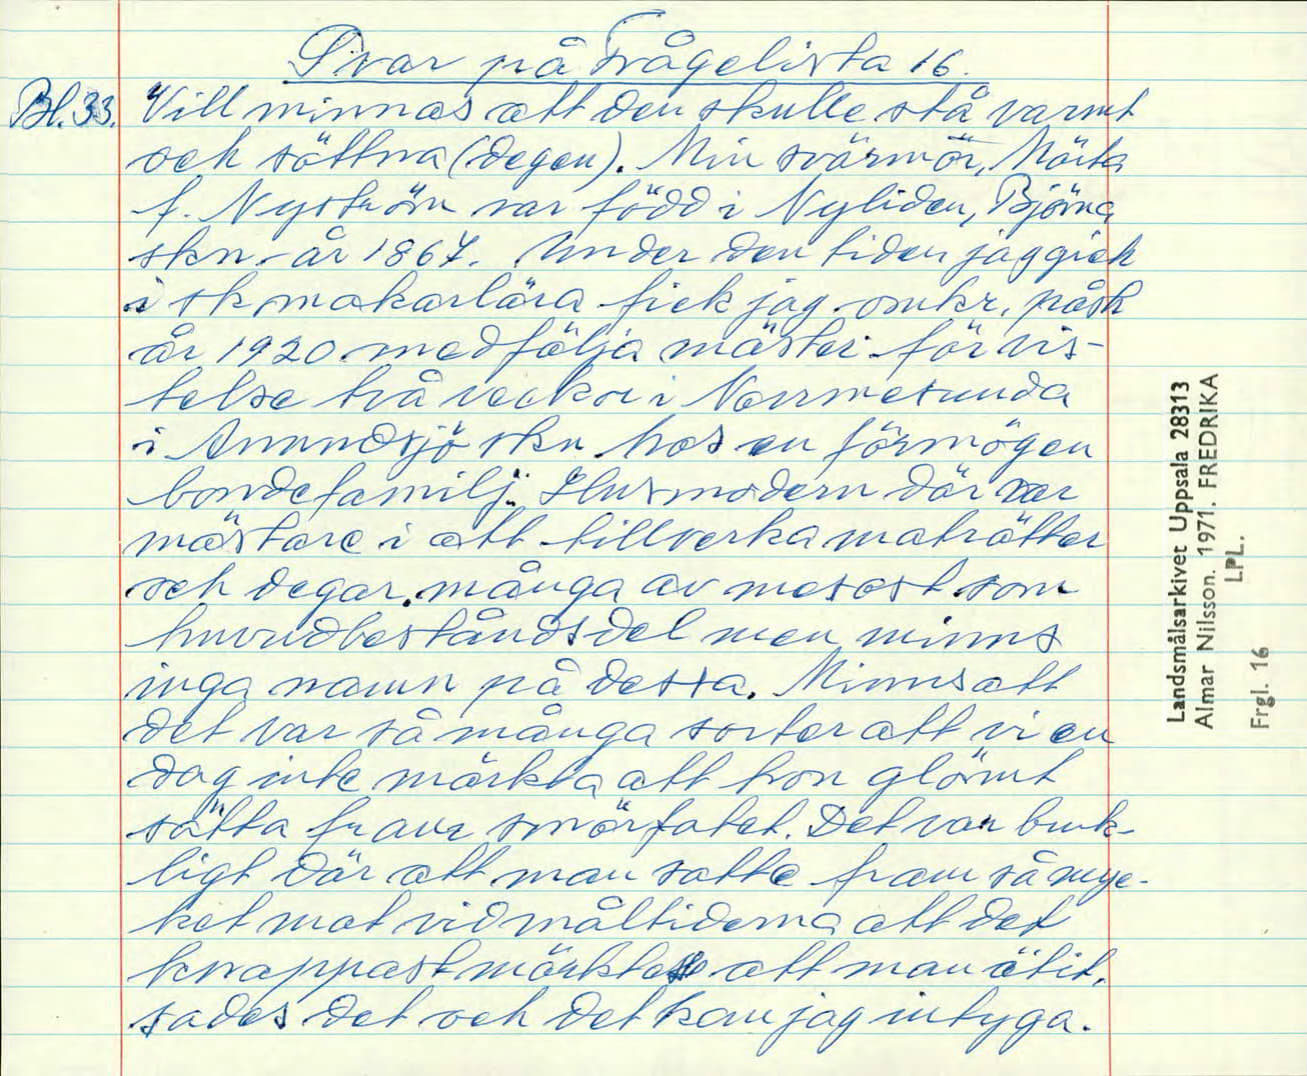 Svar på Frågelista 16.
Bl. 33. Vill minnas att den skulle stå varmt
och sättna (degen). Min svärmor, Märta
f. Nyström var född i Nyliden, Björna
skn. år 1867. Under den tiden jag gick
i skomakarlära fick jag omkr. påsk
år 1920 medfölja mäster för vis-
telse två veckor i Norrmesunda
i Anundsjö skn hos en förmögen
bondefamilj. Husmodern där var
mästare i att tillverka maträtter
och degar. många av mesost som
huvudbeståndsdel men minns
inga namn på dessa. Minns att
det var så många sorter att vi en
dag inte märkta att hon glömt
sätta fram smörfatet. Det var bruk-
ligt där att man satte fram så myc-
ket mat vid måltiderna att det
knappast märktes att man ätit.
sades det och det kan jag intyga.
Landsmålsarkivet Uppsala 28313
Almar Nilsson. 1971. FREDRIKA
LPL.
Frgl. 16